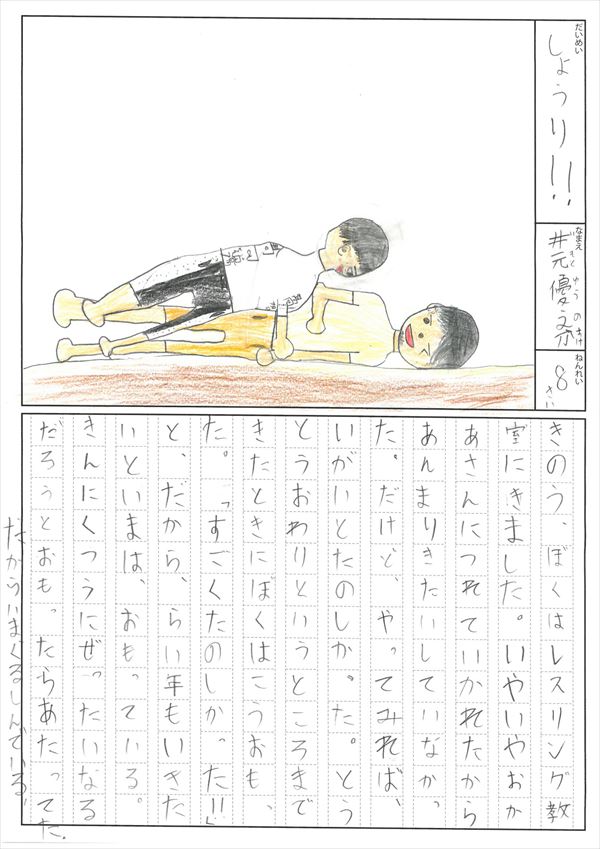 だいめい
しょうり!!
なまえ
井元優之介
ゆうのすけ
ねんれい
8
さい
きのう、ぼくはレスリング教
室にきました。いやいやおか
あさんにつれていかれたから
あんまりきたいしていなかっ
た。だけど、やってみれば、
いがいとたのしかった。とう
とうおわりというところまで
きたときにぼくはこうおもっ
た。「すごくたのしかった!!」
と、だから、らい年もいきた
いといまは、おもっている。
きんにくつうにぜったいなる
だろうとおもったらあたってた.
だからいまくるしんでいる.